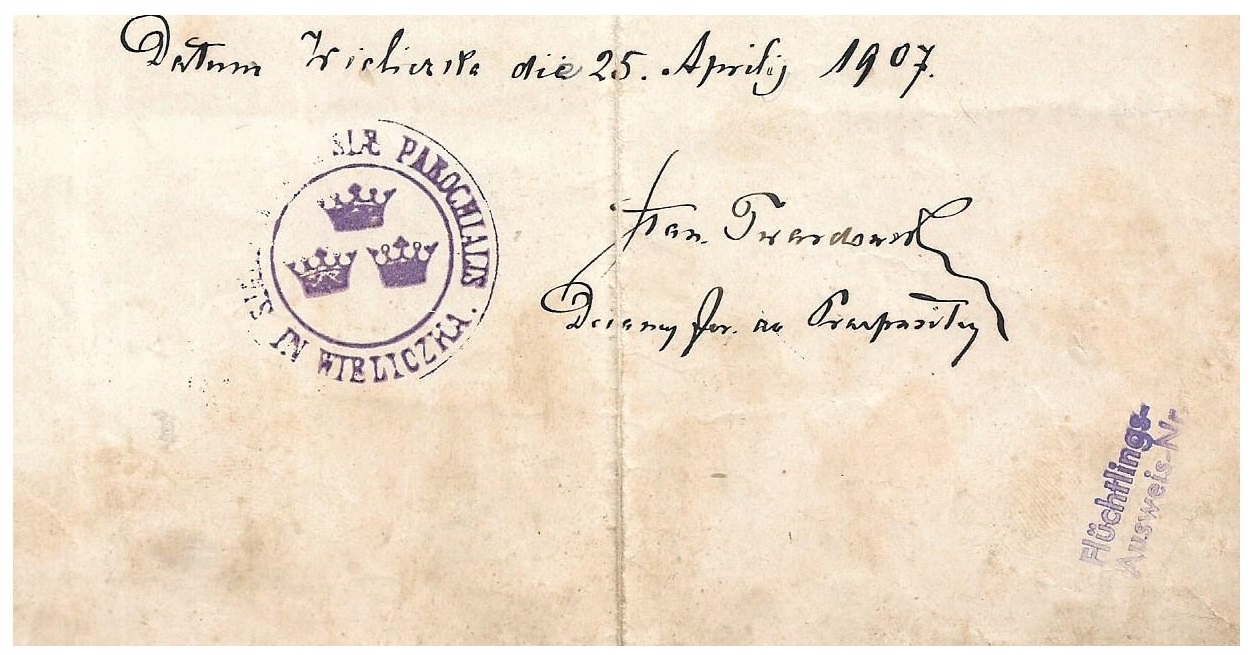 Datum Wieliczka die 25. Aprilij 1907.
SIÆ PAROCHIALIS
IN WIELICZKA.
Stan. Twardowski
Decanus for. ac Praepositus
Flüchtlings-
Ausweis-Nr.